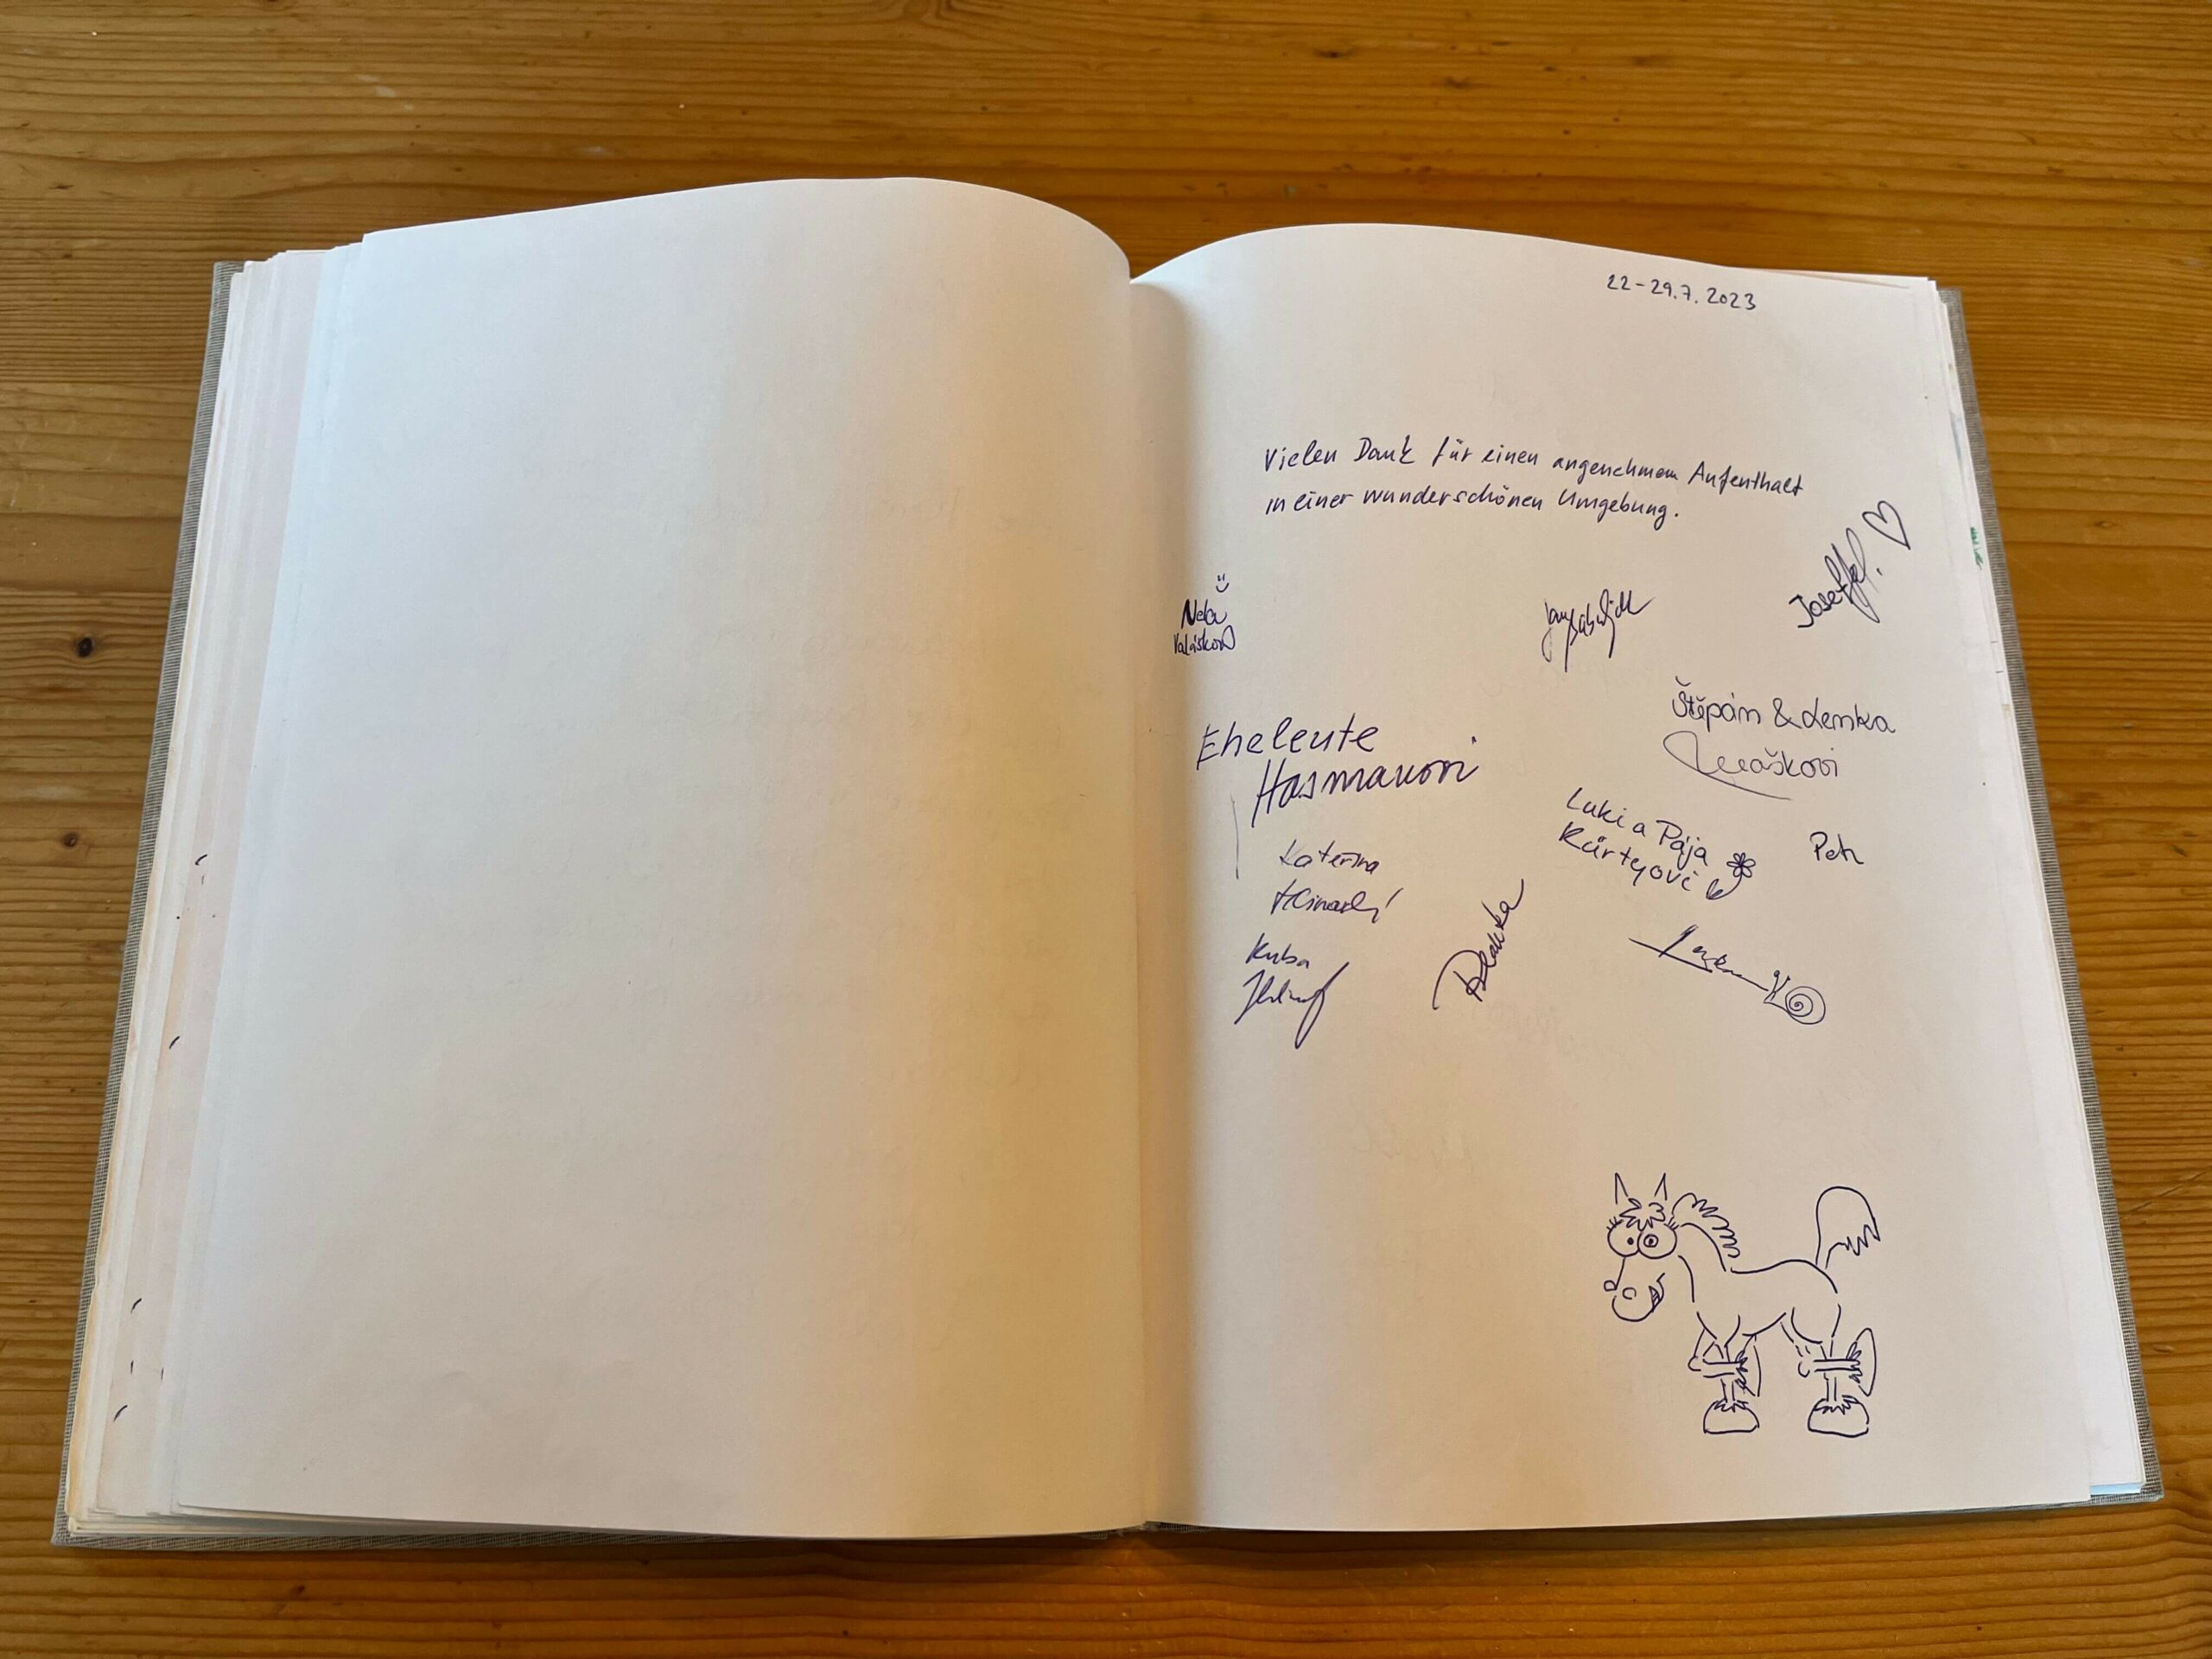 22-29.7.2023
Vielen Dank für einen angenehmen Aufenthalt
in einer wunderschönen Umgebung.
Josef
Nela
Valášková
Štěpán & Lenka
Eheleute
Hasmanovi
Luki a Pája
Kürtyovi
Petr
Kateřina
Kuba
Blanka